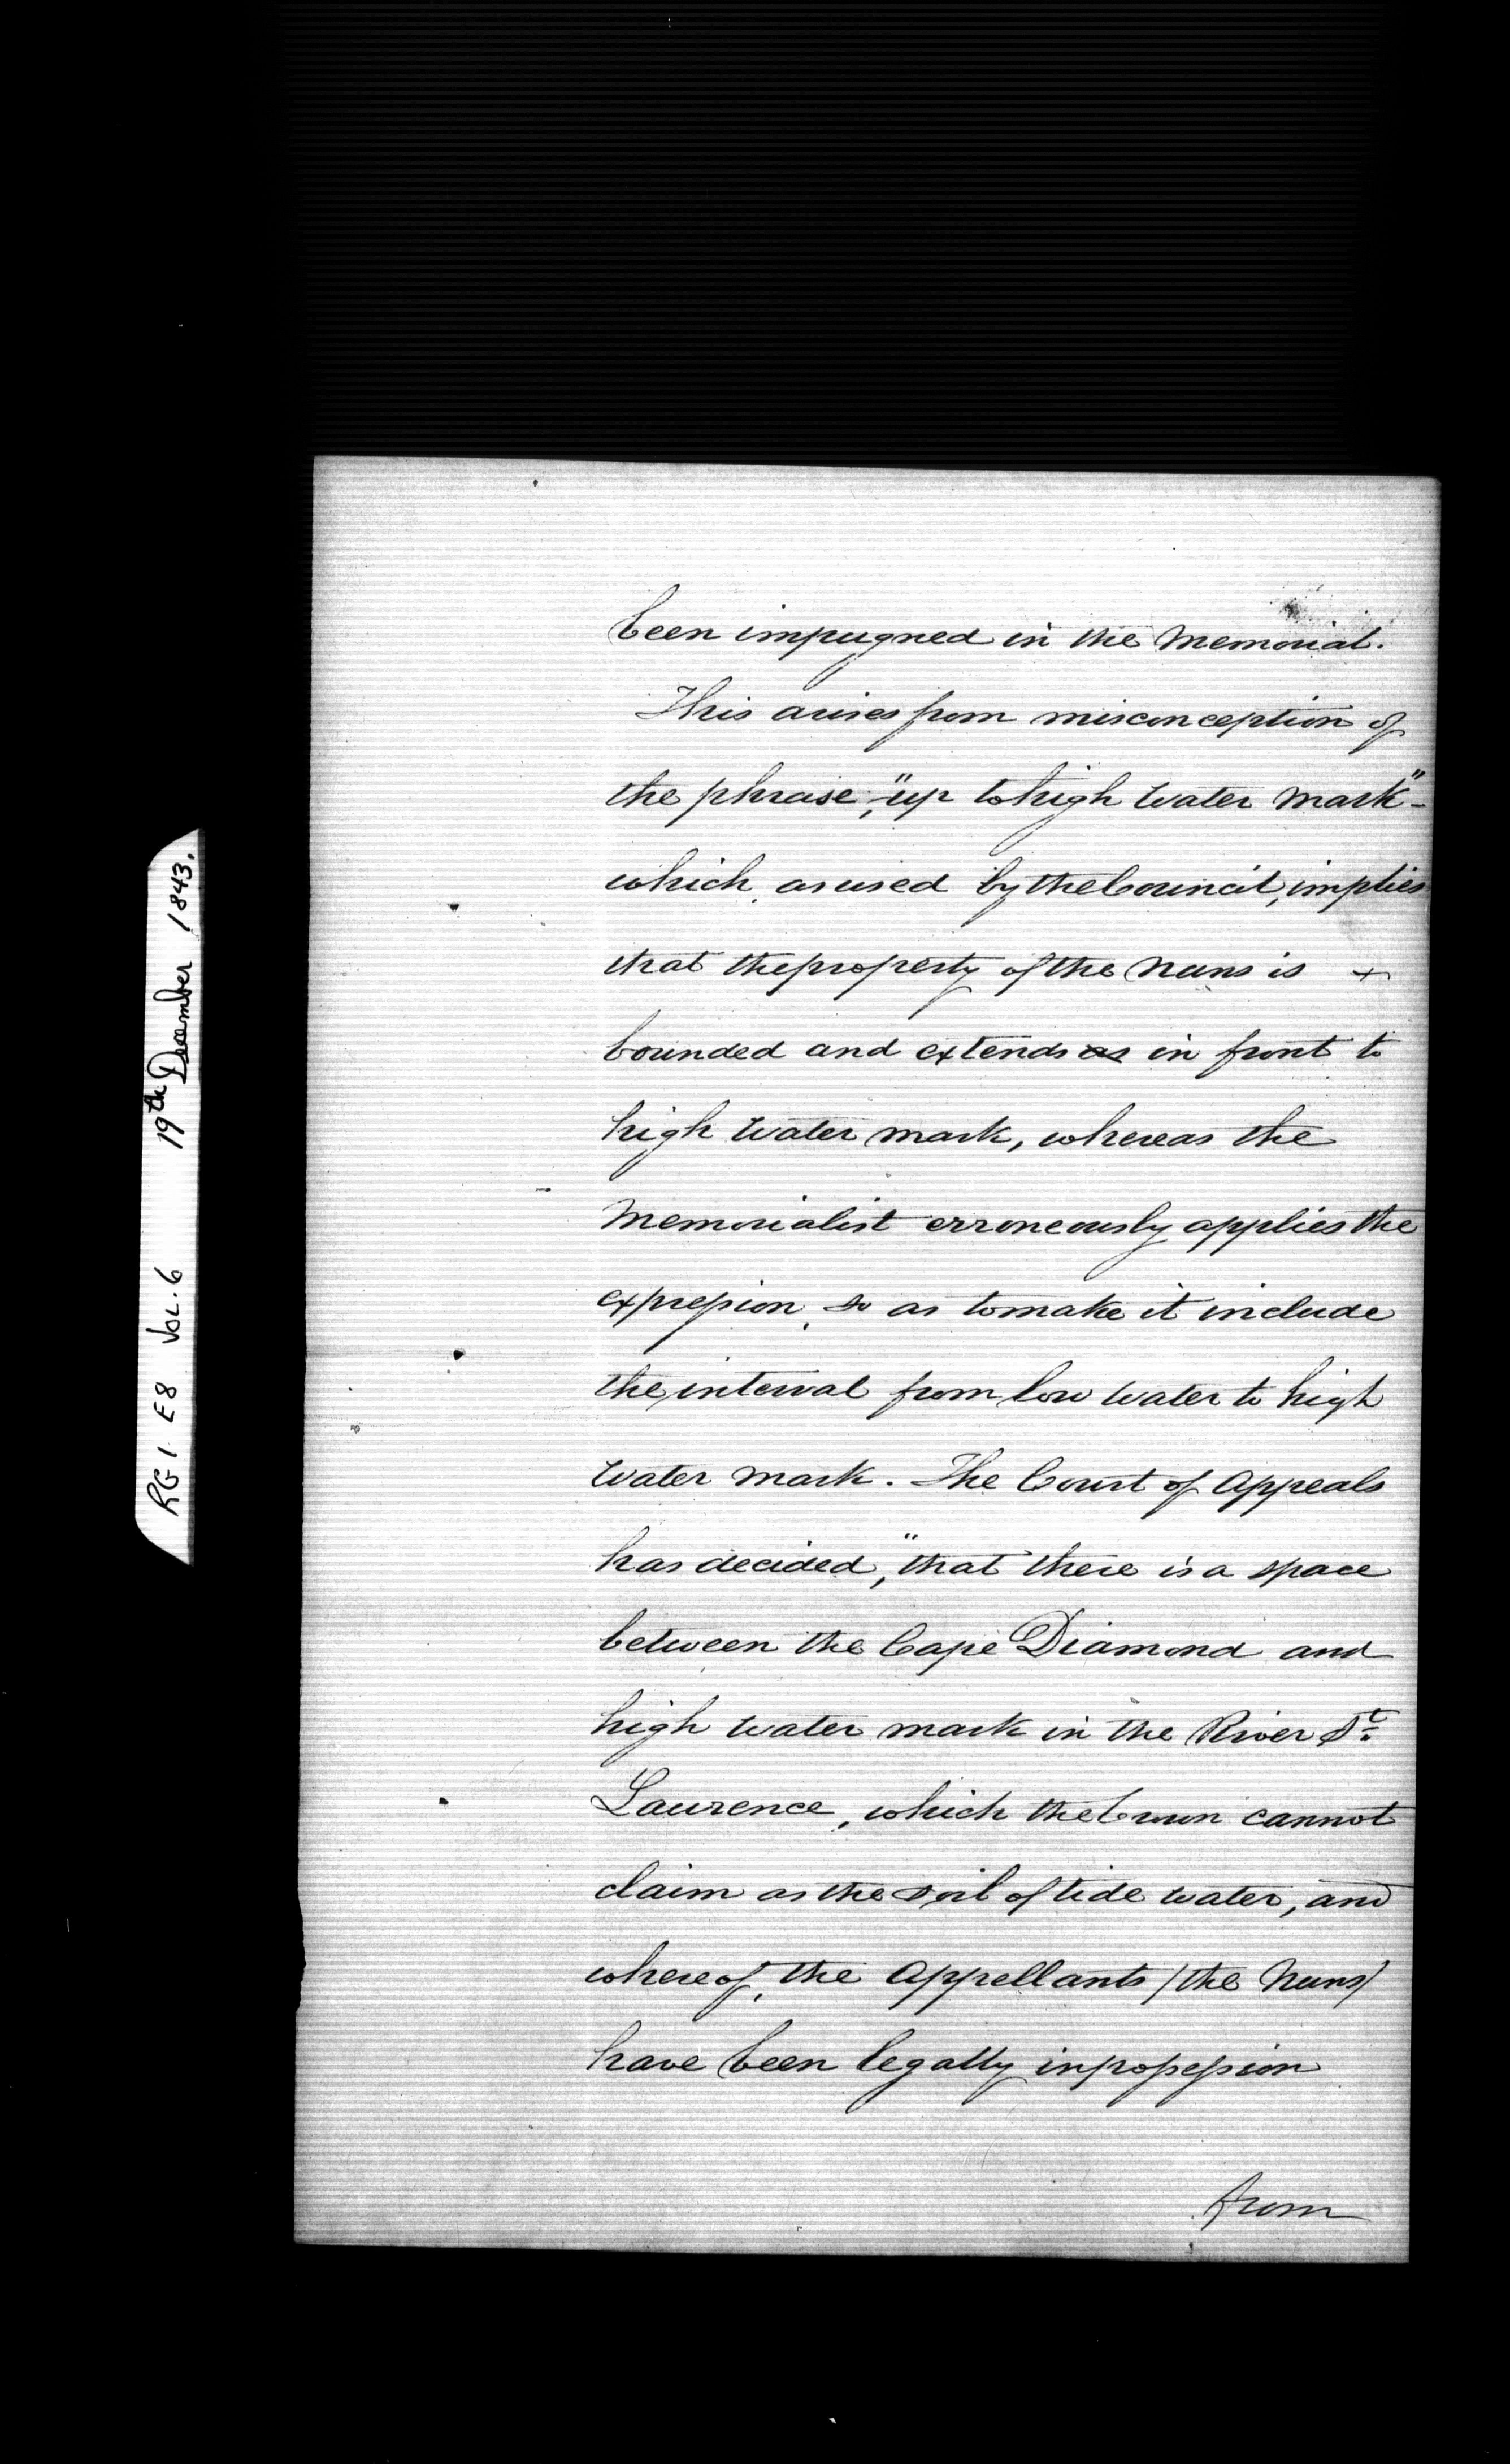 RG 1 E8 Vol. 6 19th December 1843.
been impugned in the Memorial.
This arises from misconception of
the phrase, "up to high water mark"-
which, as used by the Council, implies
that the property of the Nuns is +
bounded and extends as in front to
high water mark, whereas the
Memorialist erroneously applies the
expression, so as to make it include
the interval from low water to high
water mark. The Court of Appeals
has decided, "that there is a space
between the Cape Diamond and
high water mark in the River St.
Laurence, which the Crown cannot
claim as the soil of tide water, and
whereof, the Appellants /the Nuns/
have been legally in possession
from